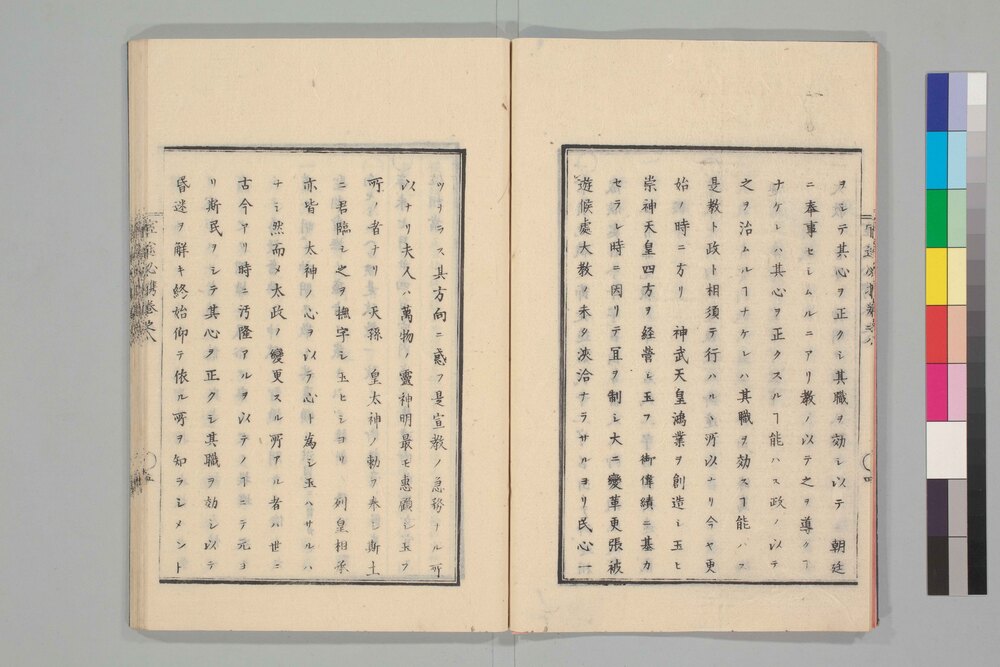 ヲシテ其心ヲ正クシ其職ヲ効シ以テ 朝廷
ニ奉事セシムルニアリ教ノ以テ之ヲ導クヿ
ナケレハ其心ヲ正クスルヿ能ハス政ノ以テ
之ヲ治ムルヿナケレハ其職ヲ効スヿ能ハス
是教ト政ト相須テ行ハルヽ所以ナリ今ヤ更
始ノ時ニ方リ 神武天皇鴻業ヲ創造シ玉ヒ
崇神天皇四方ヲ経營シ玉フ 御偉績ニ基カ
セラレ時ニ因リテ冝ヲ制シ大ニ變革更張被
遊候處大教ノ未タ浹洽ナラサルヨリ民心一
ツナラス其方向ニ惑フ是宣教ノ急務ナル所
以ナリ夫人ハ萬物ノ靈神明最モ惠顧シ玉フ
所ノ者ナリ 天孫 皇太神ノ勅ヲ奉シ斯土
ニ君臨シ之ヲ撫字シ玉ヒシヨリ 列皇相承
亦皆 太神ノ心ヲ以テ心ト為シ玉ハサルハ
ナシ然而メ太政ノ變更スル所アル者ハ世ニ
古今ヤリ時ニ汚隆アルヲ以テノヿニテ元ヨ
リ斯民ヲシテ其心ヲ正クシ其職ヲ効シ以テ
昏迷ヲ解キ終始仰テ依ル所ヲ知ラシメント